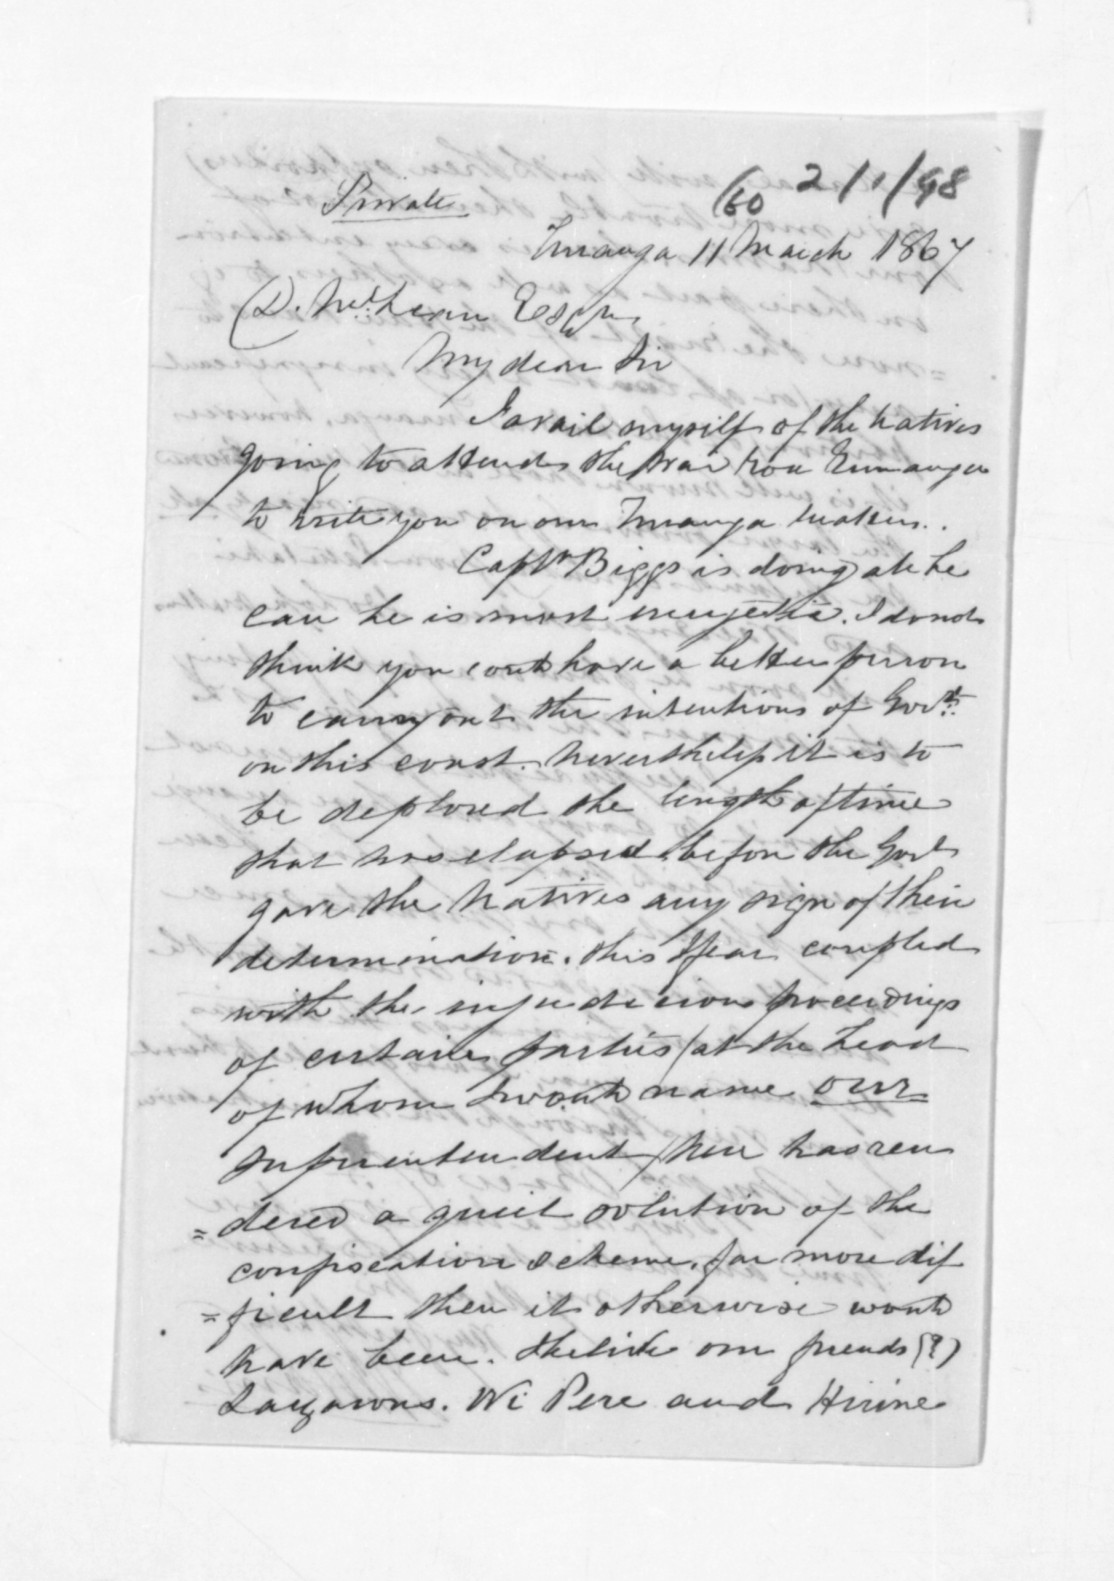 (60 2/1/98
Private
Turanga 11 March 1867
(D. McLean Esqre
My dear Sir
I avail myself of the natives
going to attend the
to write you on our Turanga matters.
Captn Biggs is doing all he
can he is most energetic. I do not
think you could have a better person
to carry out the intentions of Govt.
on this coast. nevertheless it is to
be deplored the length of time
that has elapsed before the Govt
gave the natives any sign of their
determination. this I fear coupled
with the injudicious proceedings
of certain parties (at the head
of whom I would name our
Superintendent) here has ren
=dered a quiet solution of the
confiscation scheme, far more dif
=ficult then it otherwise would
have been. our friends (?)
Lazarus. Wi Pere and Hirine